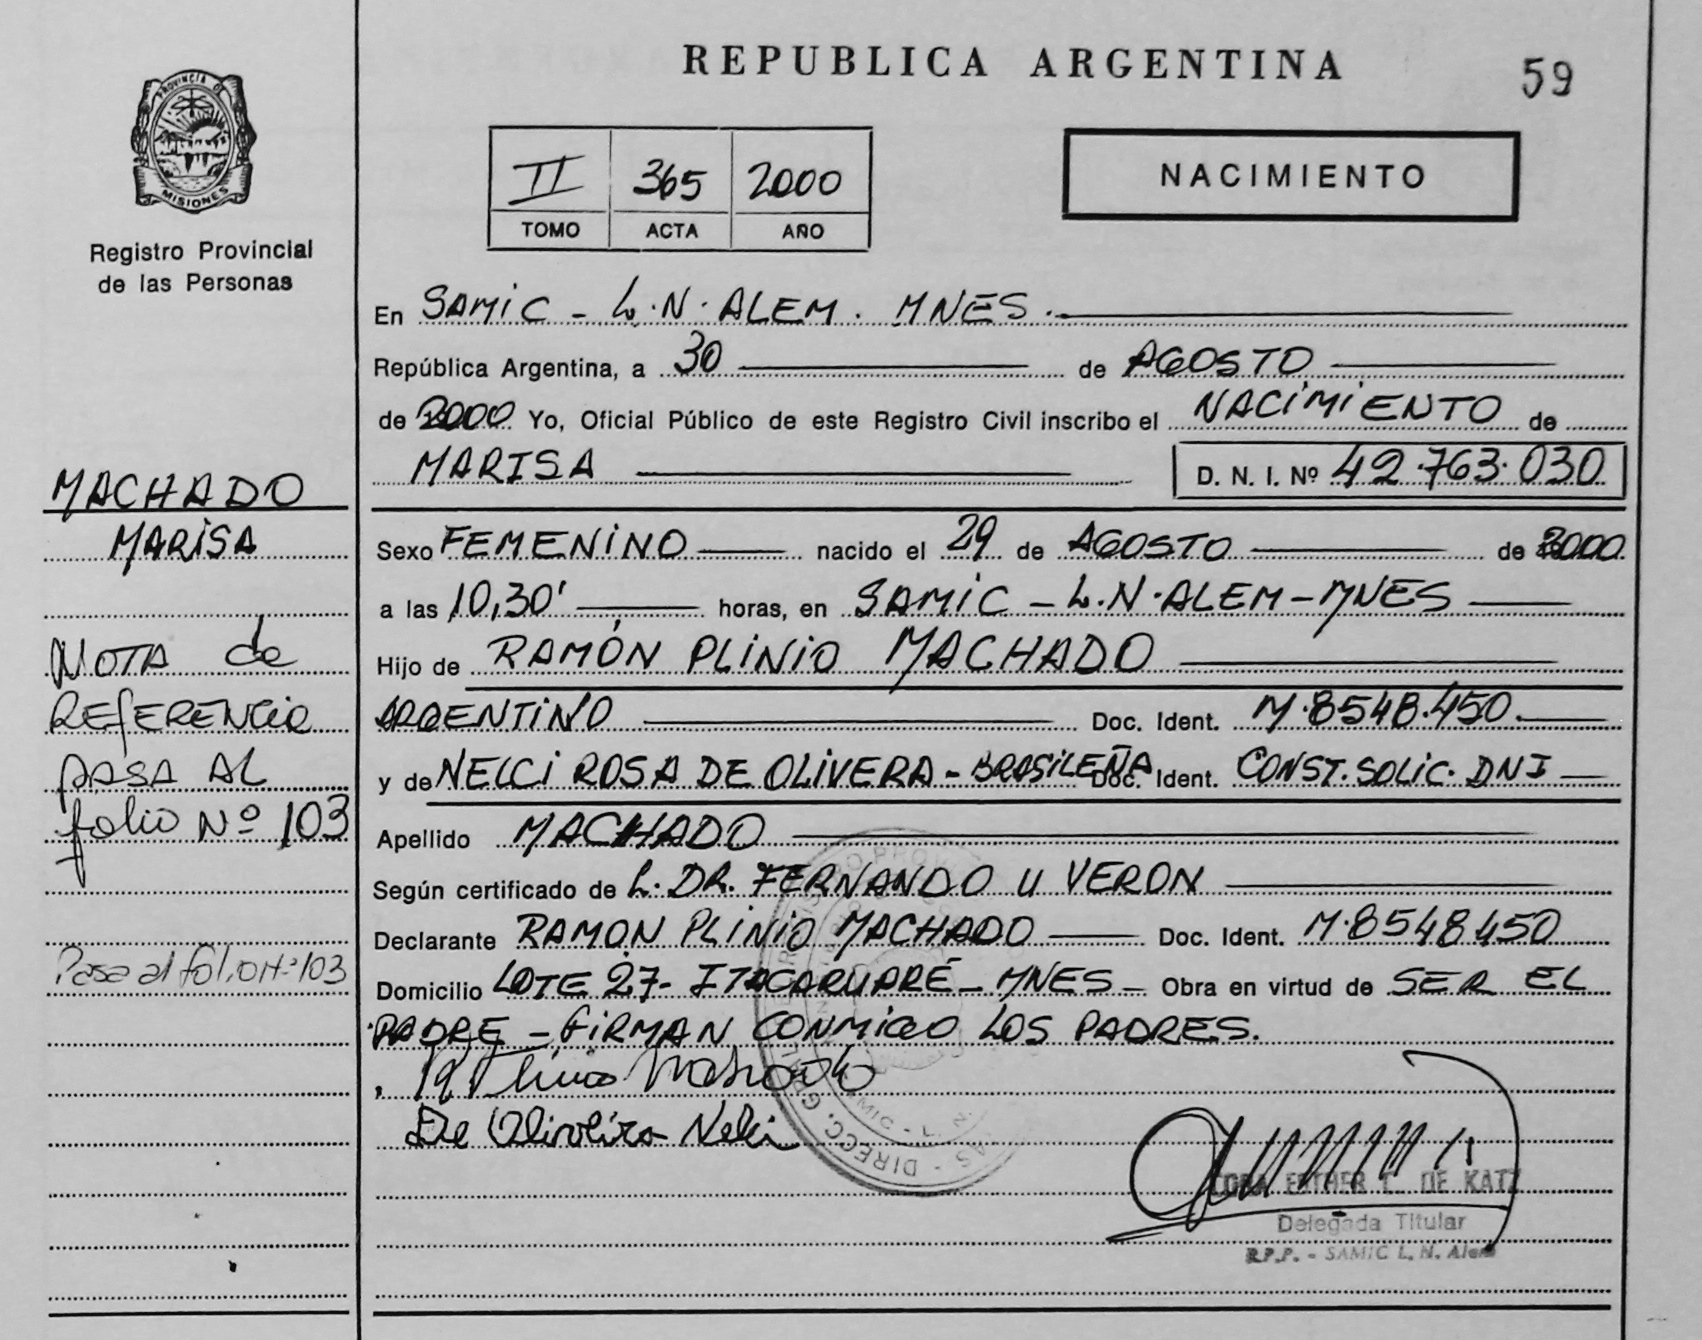 REPUBLICA ARGENTINA
59
PROVINCIA DE
MISIONES
Registro Provincial
de las Personas
II 365 2000
TOMO ACTA AÑO
NACIMIENTO
En SAMIC - L.N. ALEM. MNES.
República Argentina, a 30 de AGOSTO
de 2000 Yo, Oficial Público de este Registro Civil inscribo el NACIMIENTO de
MARISA D. N. I. Nº 42.763.030
MACHADO
MARISA
Sexo FEMENINO nacido el 29 de AGOSTO de 2000
a las 10,30' horas, en SAMIC - L.N. ALEM - MNES
Hijo de RAMÓN PLINIO MACHADO
ARGENTINO Doc. Ident. M.8548.450.
y de NELCI ROSA DE OLIVERA - BRASILEÑA Doc. Ident. CONST. SOLIC. DNI
Apellido MACHADO
Según certificado de L. DR. FERNANDO U VERON
Declarante RAMON PLINIO MACHADO Doc. Ident. M.8548450
Domicilio LOTE 27- ITACARUARÉ - MNES - Obra en virtud de SER EL
PADRE - FIRMAN CONMIGO LOS PADRES.
De Oliveira Nelci
NOTA de
REFERENCIA
PASA AL
folio Nº 103
Pasa al folio Nº 103
DE KATZ
Delegada Titular
R.P.P. - SAMIC L. N. Alem